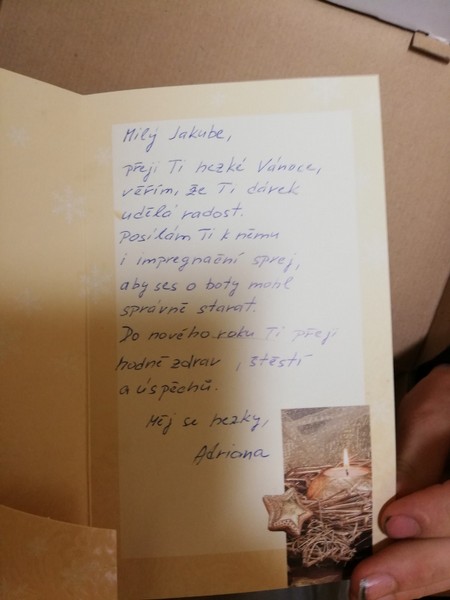 Milý Jakube,
přeji Ti hezké Vánoce,
věřím, že Ti dárek
udělá radost.
Posílám Ti k němu
i impregnační sprej,
aby ses o boty mohl
správně starat.
Do nového roku Ti přeji
hodně zdraví, štěstí
a úspěchů.
Měj se hezky,
Adriana